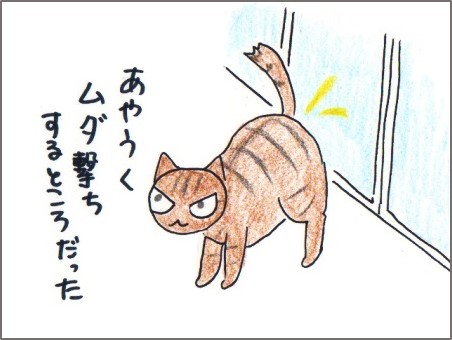 あやうく
ムダ撃ち
するところだった